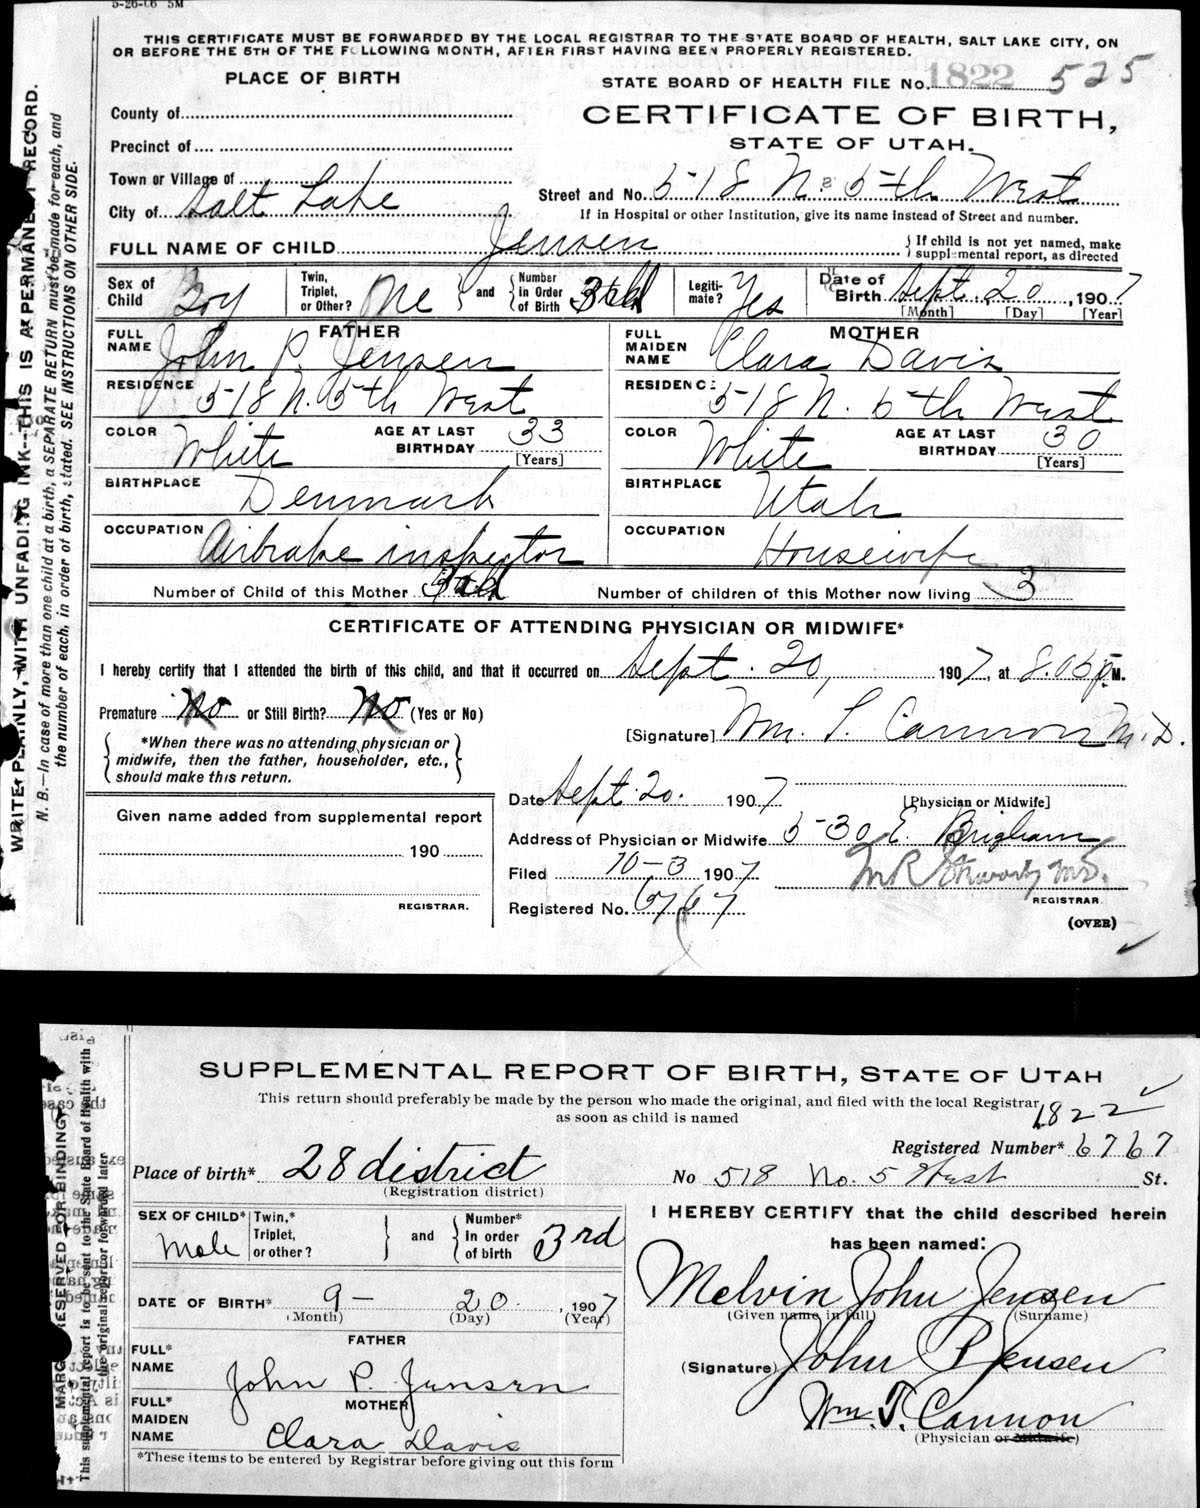 5-26-06 5M
THIS CERTIFICATE MUST BE FORWARDED BY THE LOCAL REGISTRAR TO THE STATE BOARD OF HEALTH, SALT LAKE CITY, ON
OR BEFORE THE 5TH OF THE FOLLOWING MONTH, AFTER FIRST HAVING BEEN PROPERLY REGISTERED.
PLACE OF BIRTH
STATE BOARD OF HEALTH FILE No. 1822 525
County of
CERTIFICATE OF BIRTH,
Precinct of
STATE OF UTAH.
Town or Village of
Street and No. 518 N. 5th West
City of Salt Lake
If in Hospital or other Institution, give its name instead of Street and number.
FULL NAME OF CHILD Jensen
If child is not yet named, make supplemental report, as directed
Sex of Child Boy Twin, Triplet, or Other? One and Number in Order of Birth Legiti-mate? Yes Date of Birth Sept. 20, 1907
[Month] [Day] [Year]
FATHER
FULL NAME John P. Jensen
MOTHER
FULL MAIDEN NAME Clara Davis
RESIDENCE 518 N. 5th West
RESIDENCE 518 N. 5th West
COLOR White AGE AT LAST BIRTHDAY 33 [Years]
COLOR White AGE AT LAST BIRTHDAY 30 [Years]
BIRTHPLACE Denmark
BIRTHPLACE Utah
OCCUPATION Airbrake inspector
OCCUPATION Housewife
Number of Child of this Mother
Number of children of this Mother now living 3
CERTIFICATE OF ATTENDING PHYSICIAN OR MIDWIFE*
I hereby certify that I attended the birth of this child, and that it occurred on Sept. 20, 1907, at 8.05 P.M.
Premature No or Still Birth? No (Yes or No)
[Signature] Wm. T. Cannon M.D.
*When there was no attending physician or
midwife, then the father, householder, etc.,
should make this return.
Date Sept 20. 1907
[Physician or Midwife]
Given name added from supplemental report
Address of Physician or Midwife 530 E. Brigham
190
Filed 10-3 1907
REGISTRAR.
REGISTRAR.
Registered No. 6767
(OVER)
WRITE PLAINLY, WITH UNFADING INK—THIS IS A PERMANENT RECORD.
N. B.—In case of more than one child at a birth, a SEPARATE RETURN must be made for each, and
the number of each, in order of birth, stated. SEE INSTRUCTIONS ON OTHER SIDE.
SUPPLEMENTAL REPORT OF BIRTH, STATE OF UTAH
This return should preferably be made by the person who made the original, and filed with the local Registrar
as soon as child is named
1822
Registered Number* 6767
Place of birth* 28 district
(Registration district)
No 518 No. 5 West St.
SEX OF CHILD* Male Twin,* Triplet, or other? and Number* In order of birth 3rd
I HEREBY CERTIFY that the child described herein
has been named:
DATE OF BIRTH* 9- 20. 1907
(Month) (Day) (Year)
Melvin John Jensen
(Given name in full) (Surname)
FATHER
FULL* NAME John P. Jensen
(Signature) John P Jensen
MOTHER
FULL* MAIDEN NAME Clara Davis
Wm. T. Cannon
(Physician or Midwife)
*These items to be entered by Registrar before giving out this form
MARGIN RESERVED FOR BINDING
This supplemental report is to be sent to the State Board of Health with
the original report or forwarded later